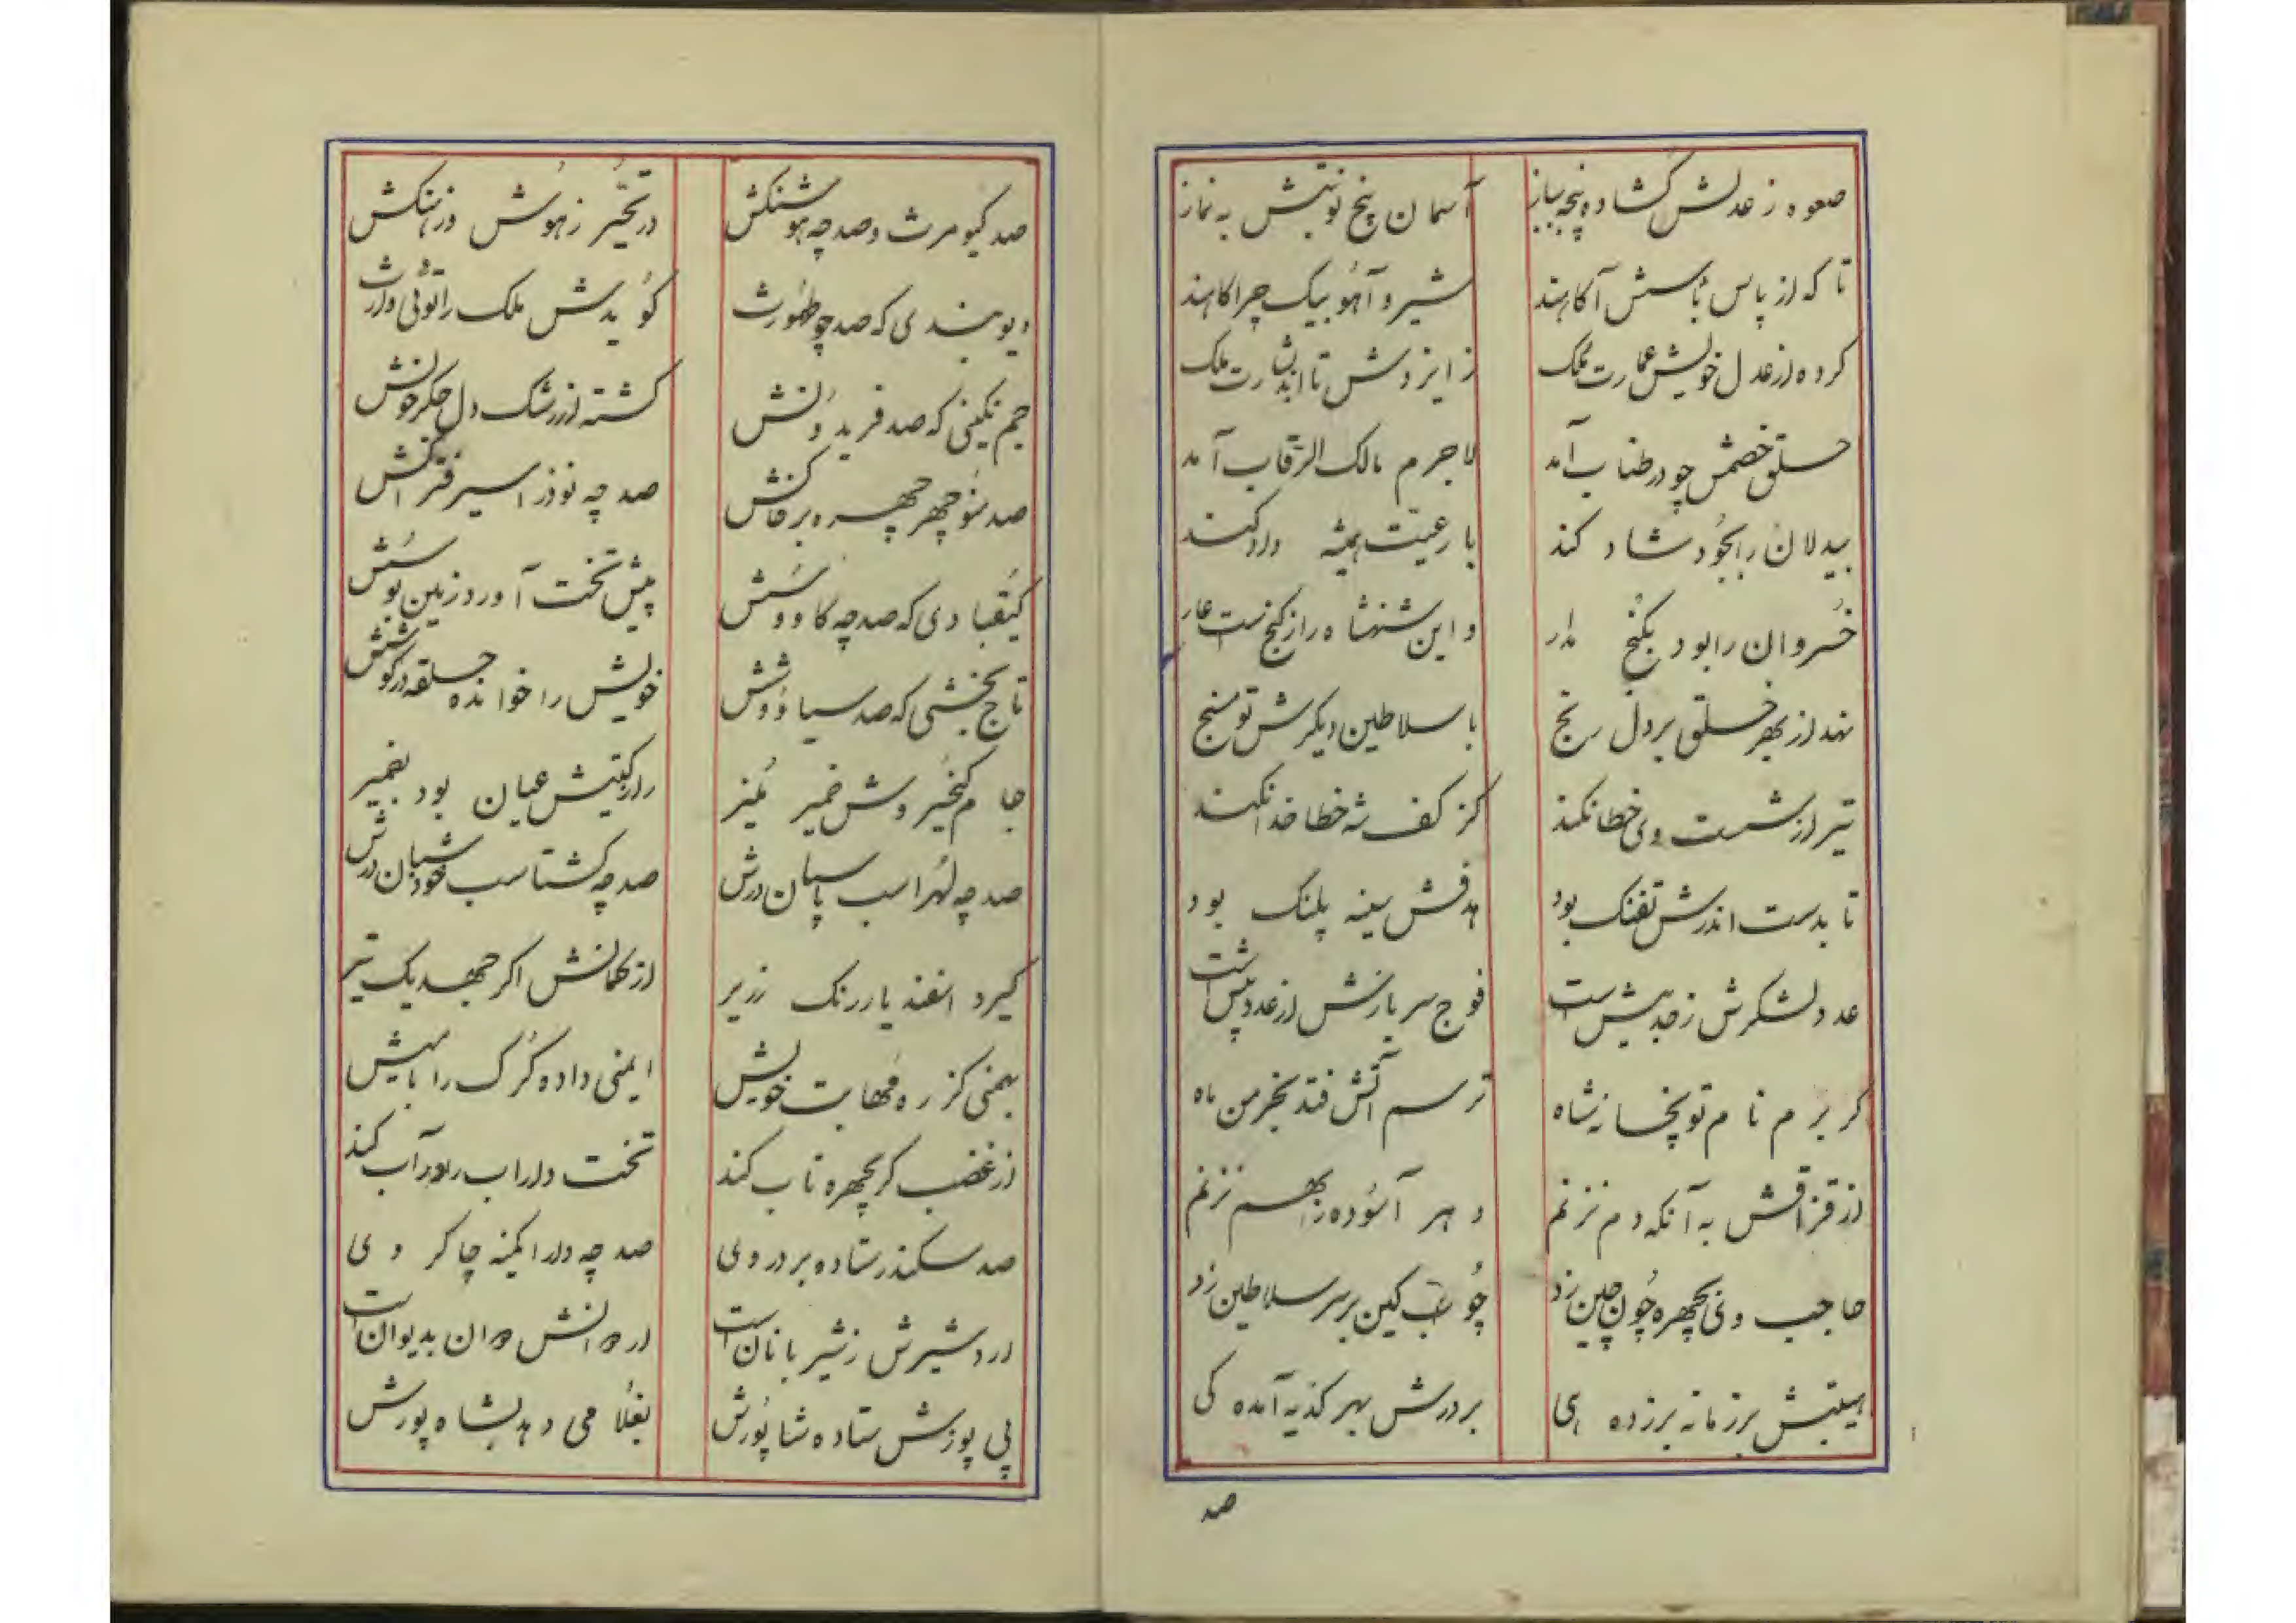 صعوه ز عدلش گشاده پنجه بباز آسمان پنج نوبتش به نماز
تا که از پاس بأسش آگاهند شیر و آهو بیک چراگاهند
کرده از عدل خویش عمارت ملک ز ایزدش تا ابد بشارت ملک
حلق خصمش چو در طناب آمد لاجرم مالک الرقاب آمد
بیدلان را بجود شاد کند با رعیت همیشه داد کند
خسروان را بود بگنج مدار و این شهنشاه را ز گنج است عار
نهد از بهر خلق بر دل رنج با سلاطین دیگرش تو مسنج
تیر از شست وی خطا نکند کز کف شه خطا خدا نکند
تا بدست اندرش تفنگ بود هدفش سینه پلنگ بود
عدد لشکرش ز حد بیش است فوج سربازش از عدد پیش است
گر برم نام توپخانه شاه ترسم آتش فتد بخرمن ماه
از قزاقش به آنکه دم نزنم دهر آسوده را بهم نزنم
حاجب وی بچهره چون چین زد چوب کین بر سر سلاطین زد
هیبتش بر زمانه بر زده هی بر درش بهر کدیه آمده کی
صد
صد کیومرث و صد چه هوشنگش در تحیر ز هوش و ز هنگش
دیوبندی که صد چو طهمورث گویدش ملک را توئی وارث
جم نگینی که صد فریدونش گشته از رشک دل جگر خونش
صد منوچهر چهره بر خاکش صد چه نوذر اسیر فتراکش
کیقبادی که صد چه کاووسش پیش تخت آورد زمین بوسش
تاج بخشی که صد سیاووشش خویش را خوانده حلقه در گوشش
جام کیخسروش ضمیر منیر راز گیتیش عیان بود بضمیر
صد چه لهراسب پاسبان درش صد چه گشتاسب خود شبان درش
گیرد اسفندیار رنگ زریر از کمانش اگر جهد یک تیر
بهمنی کز ره مهابت خویش ایمنی داده گرگ را با میش
از غضب گر بچهره تاب کند تخت داراب را در آب کند
صد سکندر ستاده بر در وی صد چه دارا کمینه چاکر وی
اردشیرش ز شیربانان است اردوانش دوان بدیوان است
پی پوزش ستاده شاپورش بغلامی دهد بشاه پورش